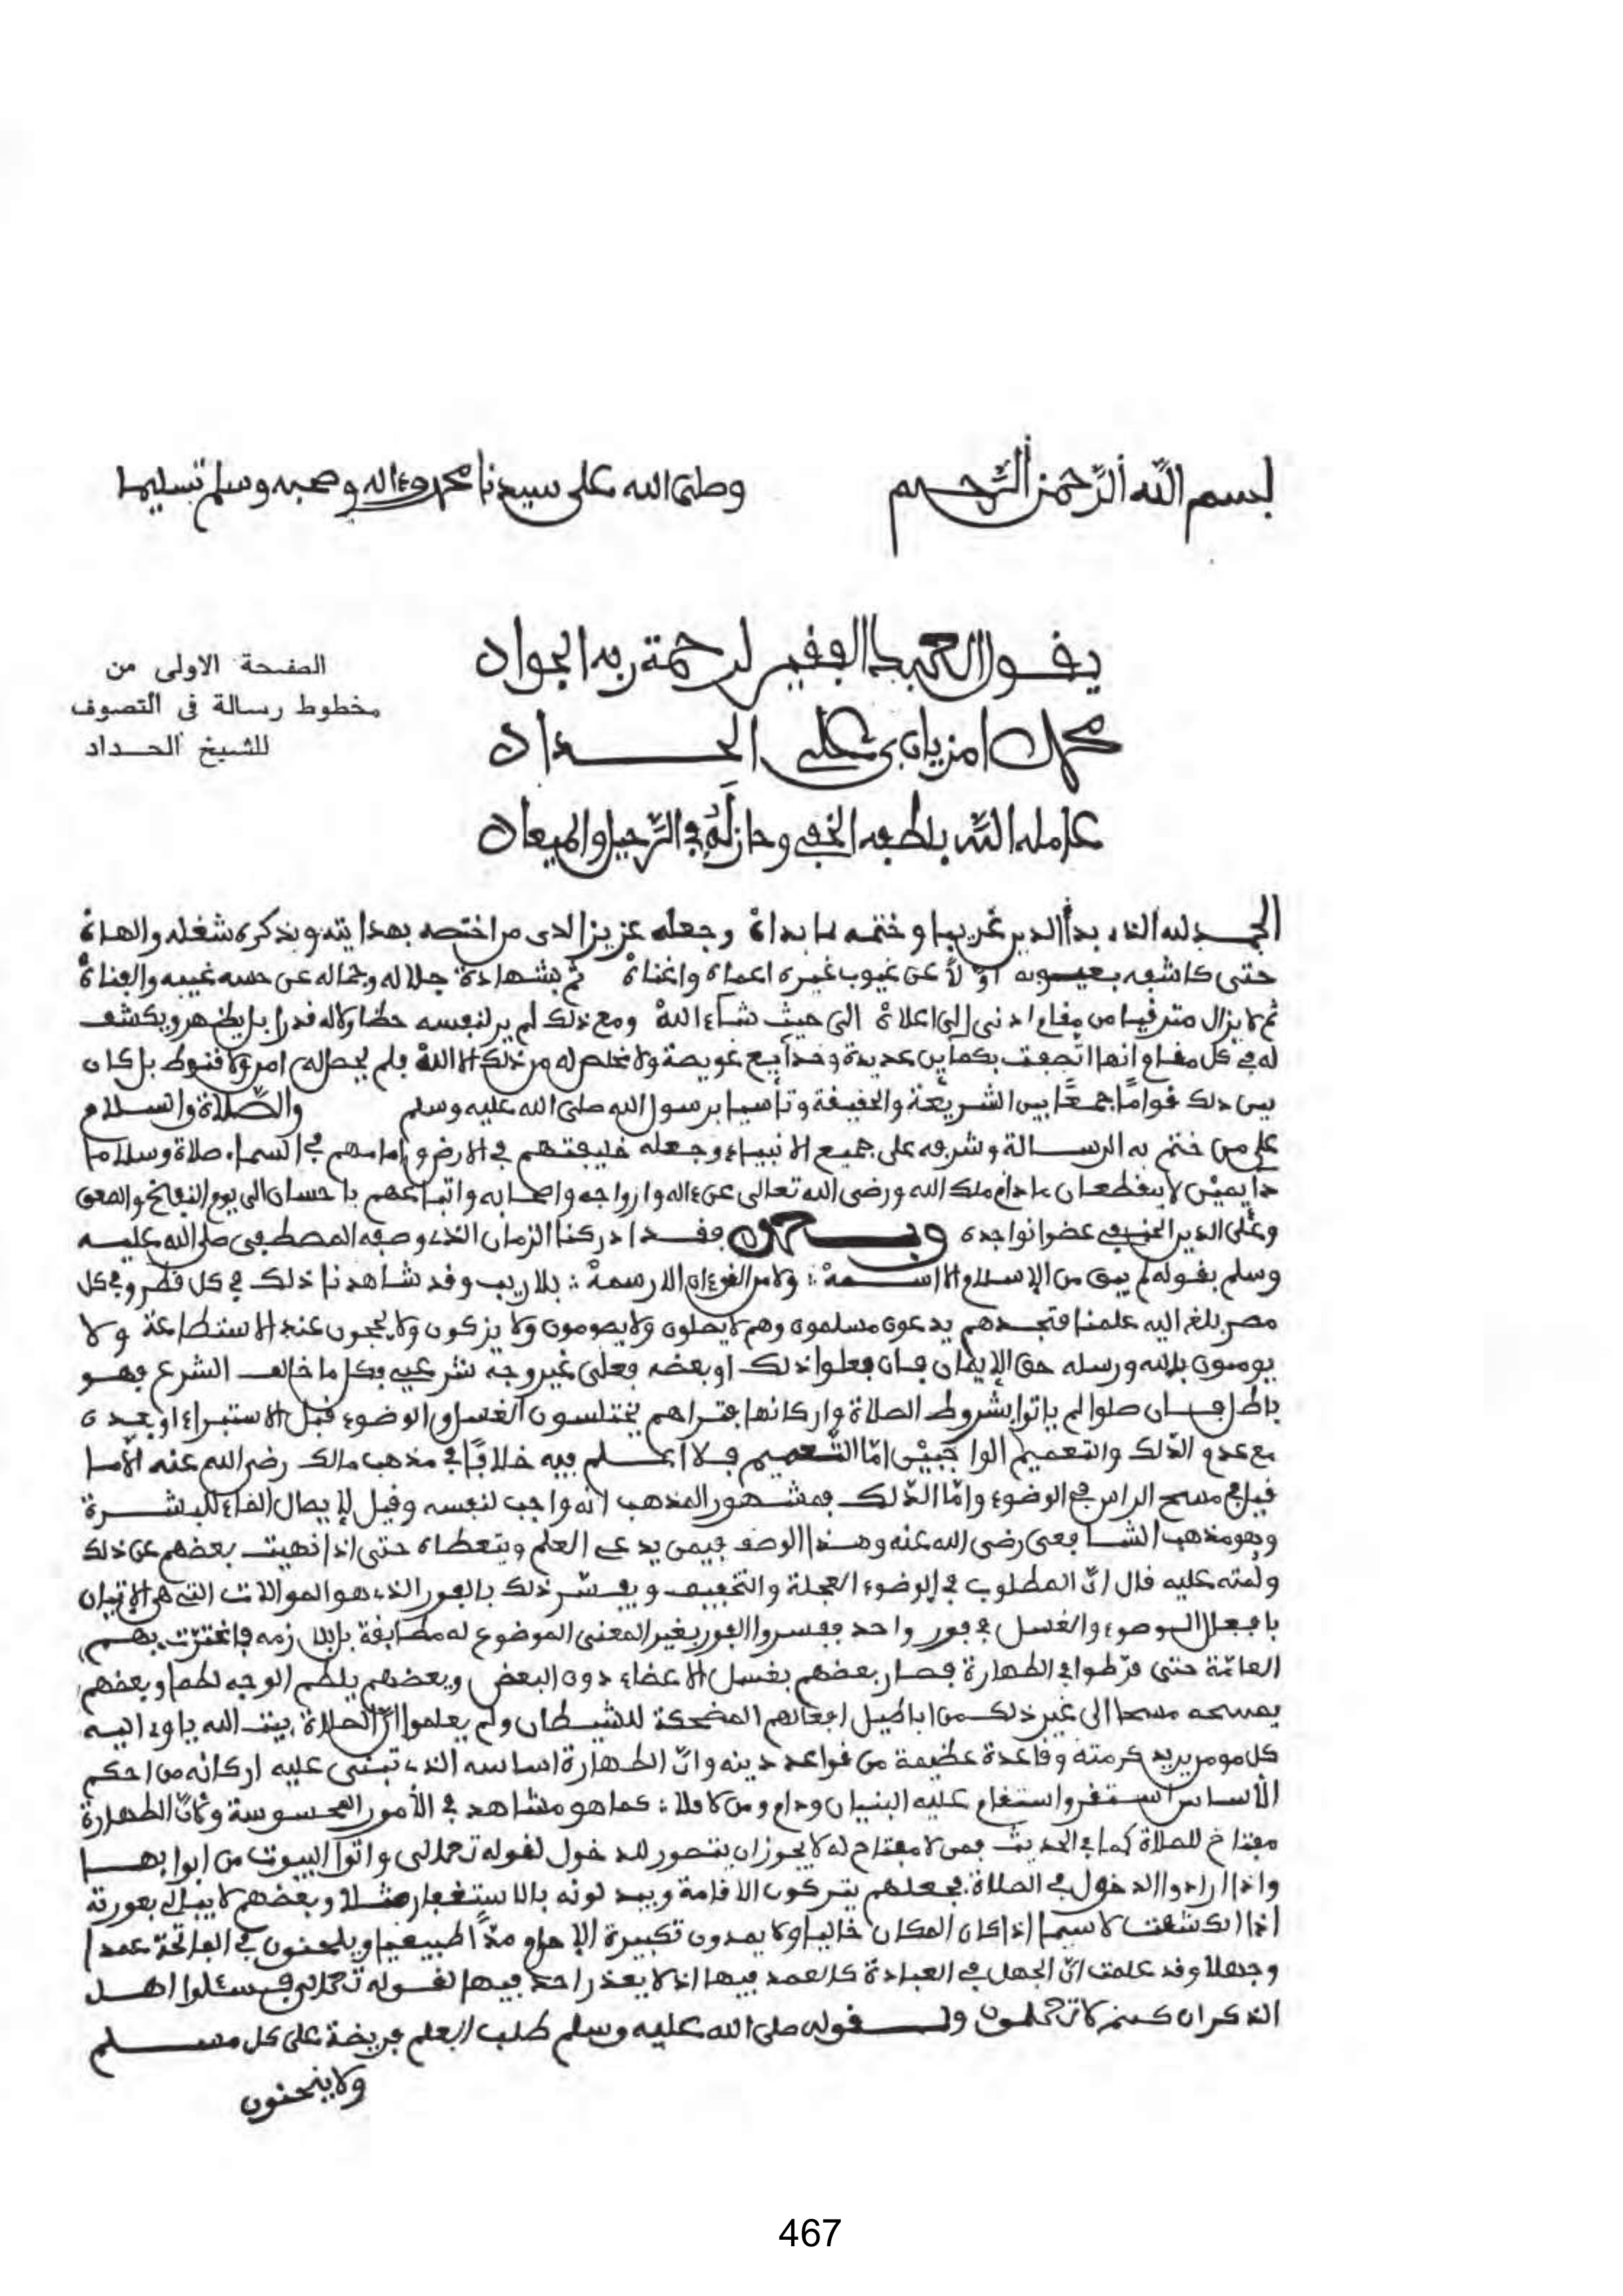 بسم الله الرحمن الرحيم وصلى الله على سيدنا محمد وءاله وصحبه وسلم تسليما
يقول العبد الفقير لرحمة ربه الجواد
محمد امزيان بن علي الحداد
عامله الله بلطفه الخفي وحاز له في الرحيل والميعاد
الصفحة الاولى من
مخطوط رسالة فى التصوف
للشيخ الحداد
الحمد لله الذى بدأ الدين غريبا وختمه كما بداه وجعله عزيزا لدى من اختصه بهدايته وبذكره شغله والهاه
حتى كاشفه بعيوبه اولا عن غيوب غيره اعماه واغناه ثم بشهادة جلاله وجماله عن حسه غيبه وافناه
ثم لا يزال مترقيا من مقام ادنى الى اعلاه الى حيث شاء الله ومع ذلك لم ير لنفسه حظا ولا له قدرا بل يظهر ويكشف
له في كل مقام انها اتصفت عديدة عويصة ولا مخلص له من ذلك الا الله فلم يحصل له امن ولا قنوط بل كان
بين ذلك قواما جمعا بين الشريعة والحقيقة وتأسيا برسول الله صلى الله عليه وسلم والصلاة والسلام
على من ختم به الرسالة وشرفه على جميع الانبياء وجعله خليفتهم في الارض وامامهم في السماء صلاة وسلاما
دايمين لا ينقطعان ما دام ملك الله ورضى الله تعالى عن ءاله وازواجه واصحابه واتباعهم باحسان الى يوم النفخ والصعق
وعلى الدين الحنيفي عضوا نواجده وبعد فقد ادركنا الزمان الذى وصفه المصطفى صلى الله عليه
وسلم بقوله لم يبق من الاسلام الا اسمه ولا من القرءان الا رسمه بلا ريب وقد شاهدنا ذلك في كل قطر وفي كل
مصر بلغ اليه علمنا فتجدهم يدعون مسلمون وهم لا يصلون ولا يصومون ولا يزكون ولا يحجون عند الاستطاعة ولا
يومنون بالله ورسله حق الإيمان فان فعلوا ذلك او بعضه فعلى غير وجه شرعي فكل ما خالف الشرع فهو
باطل فان صلوا لم ياتوا بشروط الصلاة واركانها فتراهم يختلسون الغسل والوضوء قبل الاستبراء او بعده
مع عدم الدلك والتعميم الواجبين اما التعميم فلا اعلم فيه خلافا في مذهب مالك رضي الله عنه الا ما
قيل في مسح الراس في الوضوء واما الدلك فمشهور المذهب انه واجب لنفسه وقيل لإيصال الماء للبشرة
وهو مذهب الشافعى رضى الله عنه وهذا الوصف فيمن يدعى العلم ويتعطاه حتى اذا نهيت بعضهم عن ذلك
ولمته عليه قال ان المطلوب في الوضوء العجلة والتخفيف ويفسر ذلك بالفور الذى هو الموالات التى هي الاتيان
بافعال الوضوء والغسل في فور واحد ففسروا الفور بغير المعنى الموضوع له مطابقة فاغترت بهم
العامة حتى فرطوا في الطهارة فصار بعضهم يغسل الاعضاء دون البعض وبعضهم يلطم الوجه لطما وبعضهم
يمسحه مسحا الى غير ذلك من اباطيل افعالهم المضحكة للشيطان ولم يعلموا ان الصلاة بيت الله ياوى اليه
كل مومن يريد كرمته وقاعدة عظيمة من قواعد دينه وان الطهارة اساسه الذى تبنى عليه اركانه من احكم
الأساس استقر واستقام عليه البنيان ودام ومن لا فلا كما هو مشاهد في الأمور المحسوسة وكان الطهارة
مفتاح للصلاة كما في الحديث فمن لا مفتاح له لا يجوز ان يتصور للدخول لقوله تعالى واتوا البيوت من ابوابها
واذا ارادوا الدخول في الصلاة فجعلهم يتركون الاقامة ويبدلونه بالاستغفار مثلا وبعضهم لا يبالى بعورته
اذا انكشفت لا سيما اذا كان المكان خاليا ولا يمدون تكبيرة الإحرام مدا طبيعيا ويلحنون في الفاتحة عمدا
وجهلا وقد علمت ان الجهل في العبادة كالعمد فيها اذ لا يعذر احد فيها لقوله تعالى فسئلوا اهل
الذكر ان كنتم لا تعلمون ولقوله صلى الله عليه وسلم طلب العلم فريضة على كل مسلم
ولا ينحنون
467